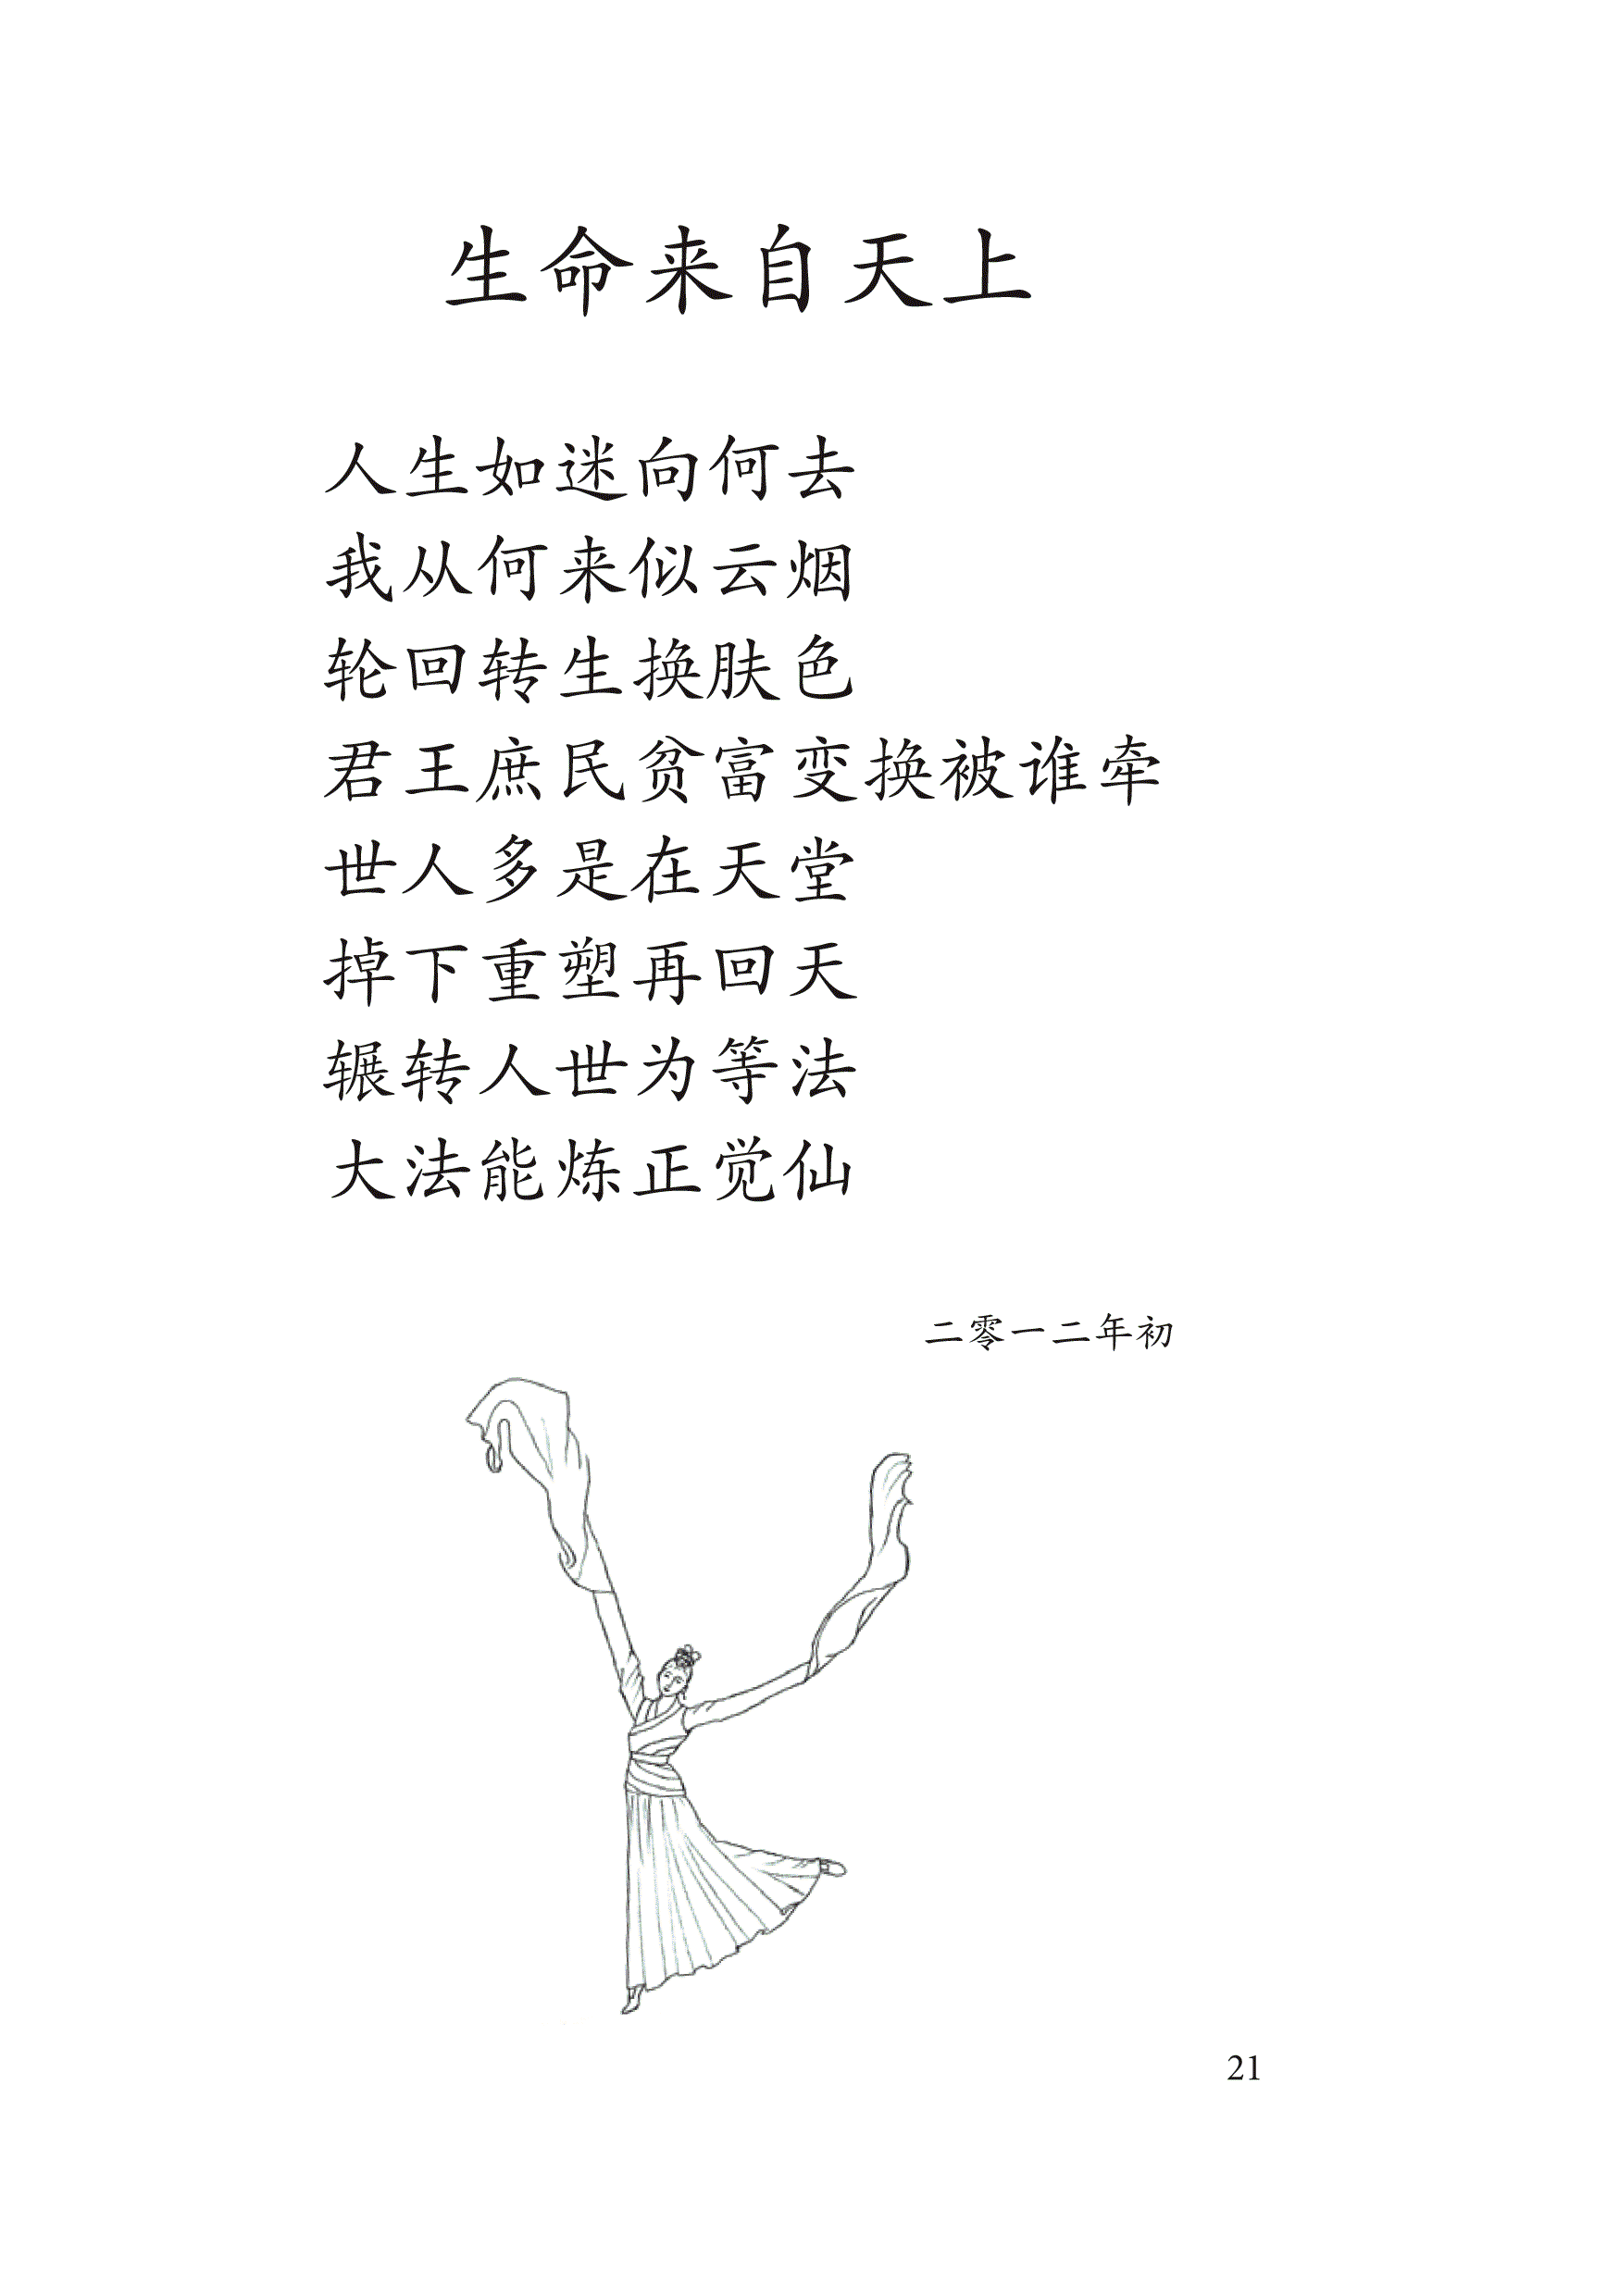 生命来自天上
人生如迷向何去
我从何来似云烟
轮回转生换肤色
君王庶民贫富变换被谁牵
世人多是在天堂
掉下重塑再回天
辗转人世为等法
大法能炼正觉仙
二零一二年初
21